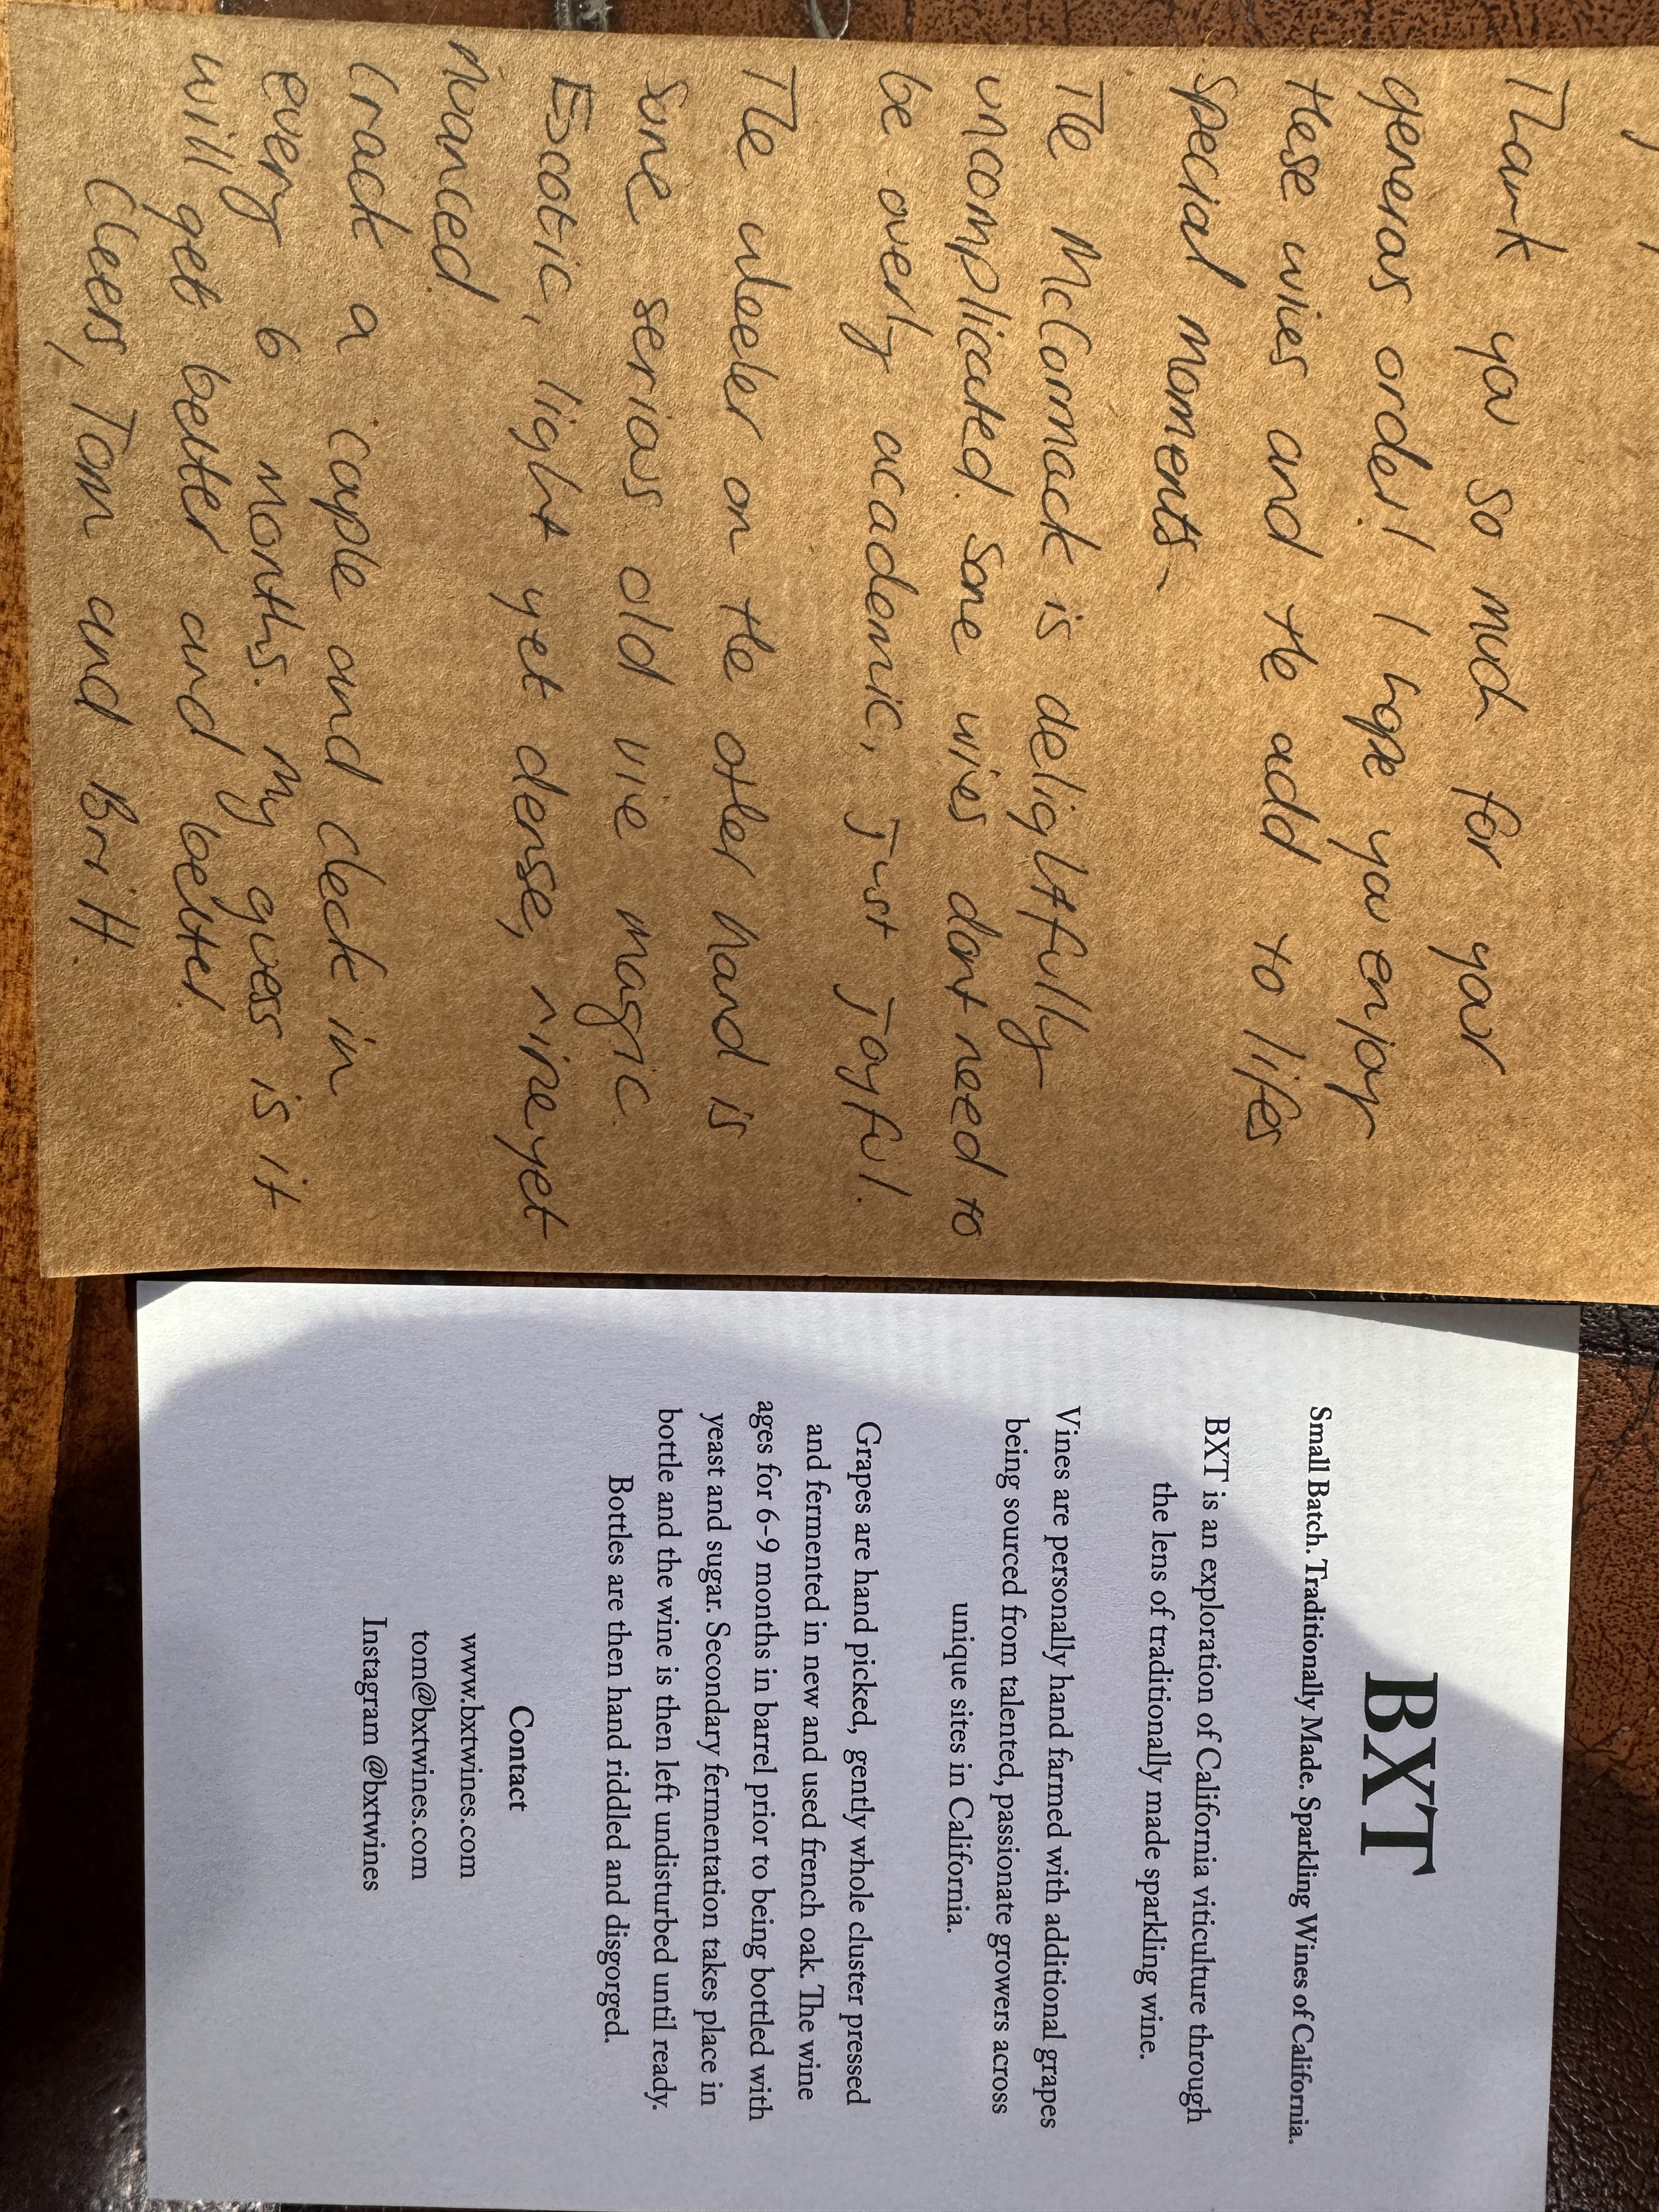 Thank you so much for your
generous order! I hope you enjoy
these wines and the add to lifes
special moments
The McCornack is delightfully
uncomplicated. Some wines dont need to
be overly academic, just joyful.
The wheeler on the other hand is
some serious old vine magic.
Exotic, light yet dense, ripe yet
nuanced
Crack a couple and check in
every 6 months. My guess is it
will get better and better
Cheers, Tom and Britt
BXT
Small Batch. Traditionally Made. Sparkling Wines of California.
BXT is an exploration of California viticulture through
the lens of traditionally made sparkling wine.
Vines are personally hand farmed with additional grapes
being sourced from talented, passionate growers across
unique sites in California.
Grapes are hand picked, gently whole cluster pressed
and fermented in new and used french oak. The wine
ages for 6-9 months in barrel prior to being bottled with
yeast and sugar. Secondary fermentation takes place in
bottle and the wine is then left undisturbed until ready.
Bottles are then hand riddled and disgorged.
Contact
www.bxtwines.com
tom@bxtwines.com
Instagram @bxtwines